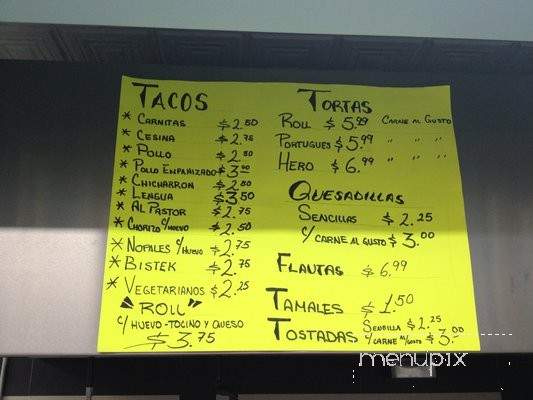 TACOS
* CARNITAS $2.50
* CESINA $2.75
* POLLO $2.50
* POLLO EMPANIZADO $3.00
* CHICHARRON $2.50
* LENGUA $3.50
* AL PASTOR $2.75
* CHORIZO C/HUEVO $2.50
* NOPALES C/HUEVO $2.75
* BISTEK $2.75
* VEGETARIANOS $2.25
"ROLL"
C/HUEVO-TOCINO Y QUESO
$3.75
TORTAS
ROLL $5.99 CARNE AL GUSTO
PORTUGUES $5.99 " " "
HERO $6.99 " " "
QUESADILLAS
SENCILLAS $2.25
C/CARNE AL GUSTO $3.00
FLAUTAS $6.99
TAMALES $1.50
TOSTADAS SENCILLA $2.25
C/CARNE AL GUSTO $3.00
menupix